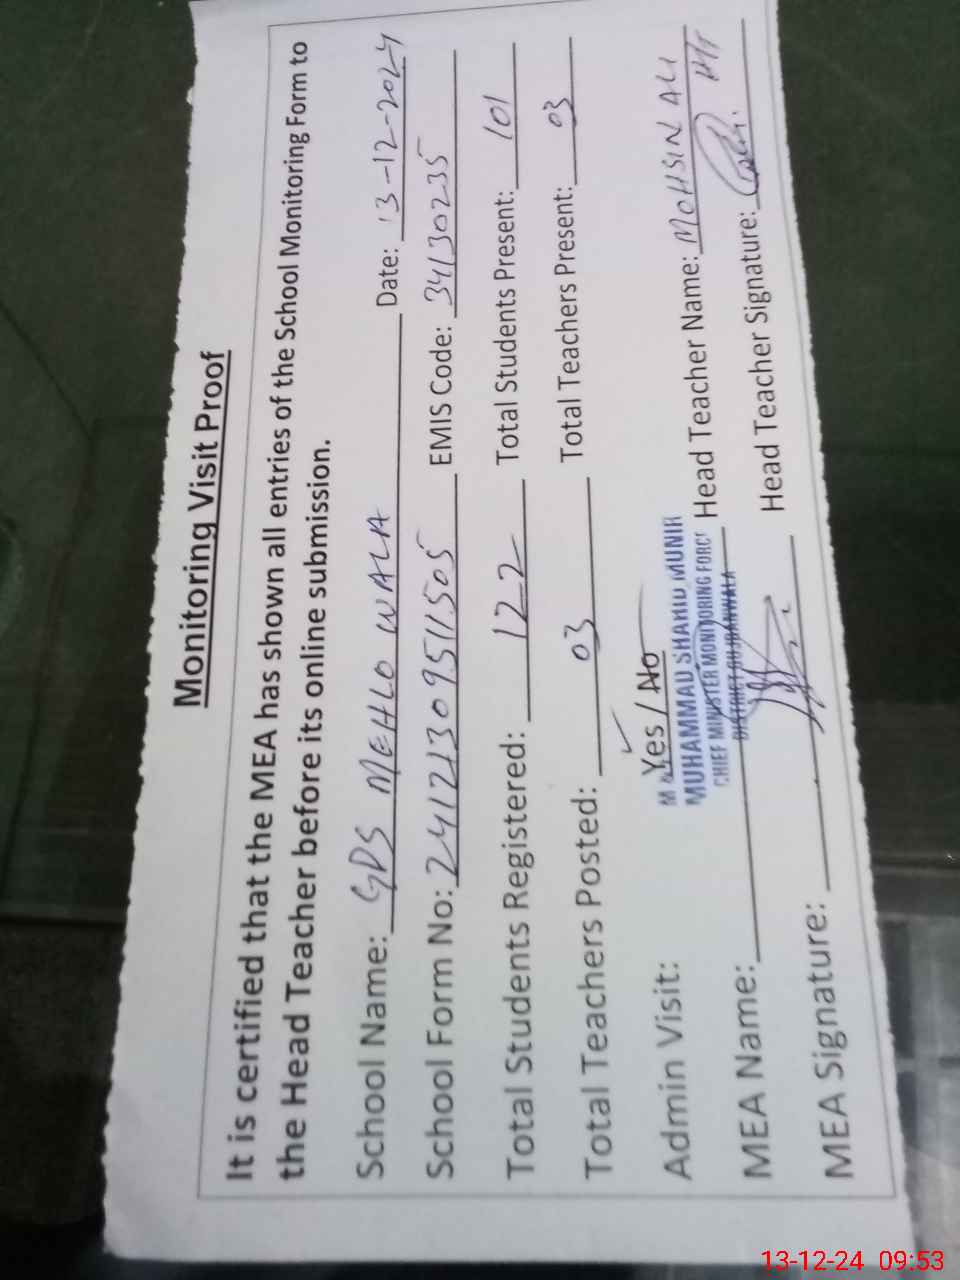 Monitoring Visit Proof
It is certified that the MEA has shown all entries of the School Monitoring Form to
the Head Teacher before its online submission.
School Name: GPS MEHLO WALA Date: 13-12-2024
School Form No: 24121309511505 EMIS Code: 34130235
Total Students Registered: 122 Total Students Present: 101
Total Teachers Posted: 03 Total Teachers Present: 03
Admin Visit: Yes / No
MUHAMMAD SHAHID MUNIR
CHIEF MINISTER MONITORING FORCE
DISTRICT GUJRANWALA
MEA Name: Head Teacher Name: MOHSIN ALI
MEA Signature: Head Teacher Signature: HT
13-12-24 09:53